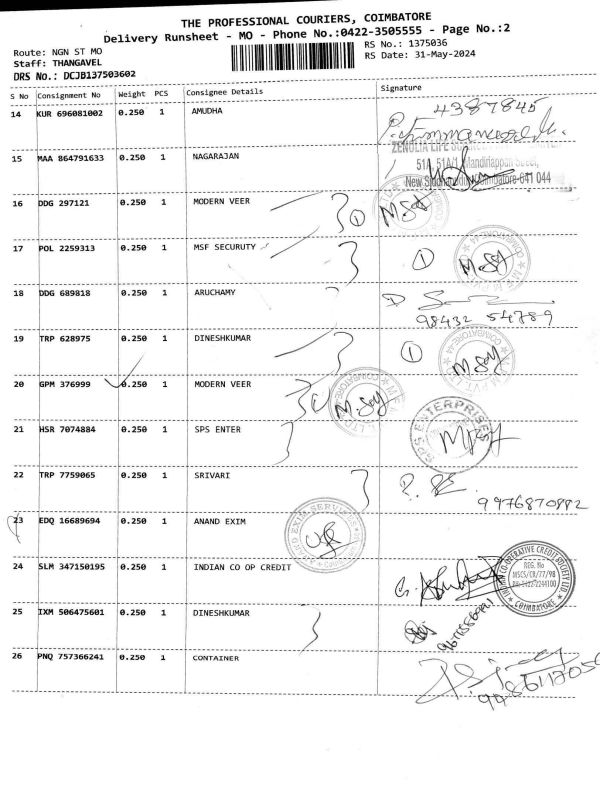 THE PROFESSIONAL COURIERS, COIMBATORE
Delivery Runsheet - MO - Phone No.:0422-3505555 - Page No.:2
Route: NGN ST MO
RS No.: 1375036
Staff: THANGAVEL
RS Date: 31-May-2024
DRS No.: DCJB137503602
S No Consignment No Weight PCS Consignee Details Signature
14 KUR 696081002 0.250 1 AMUDHA 4387845
ZENOLIA LIFE
51A, 51A/1, Mandiriappan Street,
15 MAA 864791633 0.250 1 NAGARAJAN
Coimbatore-641 044
16 DDG 297121 0.250 1 MODERN VEER 1
17 POL 2259313 0.250 1 MSF SECURUTY 1
18 DDG 689818 0.250 1 ARUCHAMY
98432 54789
19 TRP 628975 0.250 1 DINESHKUMAR 1
20 GPM 376999 0.250 1 MODERN VEER
21 HSR 7074884 0.250 1 SPS ENTER SPS ENTERPRISES
22 TRP 7759065 0.250 1 SRIVARI
9976870992
23 EDQ 16689694 0.250 1 ANAND EXIM EXIM SERVICES
24 SLM 347150195 0.250 1 INDIAN CO OP CREDIT
INDIAN CO-OPERATIVE CREDIT SOCIETY LTD
REG. No
MSCS/CR/77/98
PH: 0422-2244100
COIMBATORE
25 IXM 506475601 0.250 1 DINESHKUMAR
26 PNQ 757366241 0.250 1 CONTAINER